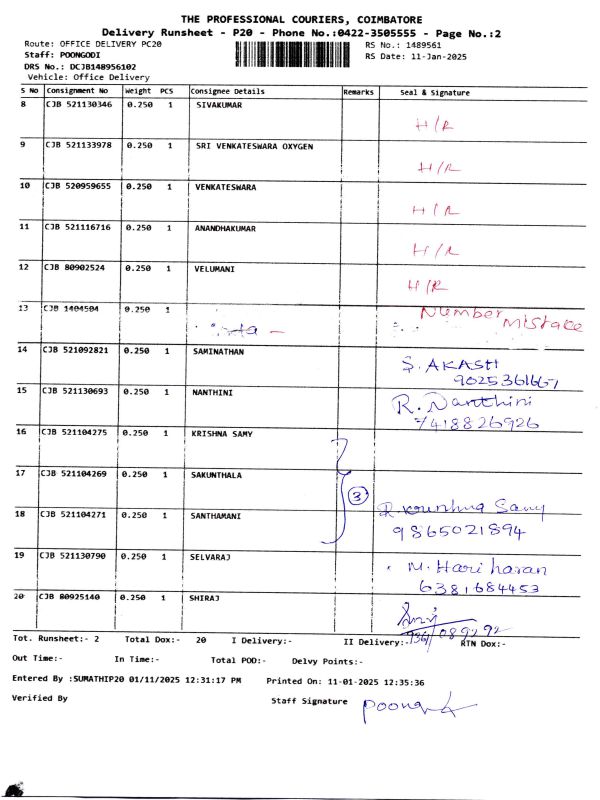 THE PROFESSIONAL COURIERS, COIMBATORE
Delivery Runsheet - P20 - Phone No.:0422-3505555 - Page No.:2
Route: OFFICE DELIVERY PC20 RS No.: 1489561
Staff: POONGODI RS Date: 11-Jan-2025
DRS No.: DCJB148956102
Vehicle: Office Delivery
S No Consignment No Weight PCS Consignee Details Remarks Seal & Signature
8 CJB 521130346 0.250 1 SIVAKUMAR H/R
9 CJB 521133978 0.250 1 SRI VENKATESWARA OXYGEN H/R
10 CJB 520959655 0.250 1 VENKATESWARA H/R
11 CJB 521116716 0.250 1 ANANDHAKUMAR H/R
12 CJB 80902524 0.250 1 VELUMANI H/R
13 CJB 1404504 0.250 1 Number Mistake
14 CJB 521092821 0.250 1 SAMINATHAN S. AKASH
15 CJB 521130693 0.250 1 NANTHINI R. Nanthini
7418826926
16 CJB 521104275 0.250 1 KRISHNA SAMY
17 CJB 521104269 0.250 1 SAKUNTHALA 3
18 CJB 521104271 0.250 1 SANTHAMANI Samy
9865021894
19 CJB 521130790 0.250 1 SELVARAJ M. Hari haran
6381684453
20 CJB 80925140 0.250 1 SHIRAJ
Tot. Runsheet:- 2 Total Dox:- 20 I Delivery:- II Delivery:- RTN Dox:-
Out Time:- In Time:- Total POD:- Delvy Points:-
Entered By :SUMATHIP20 01/11/2025 12:31:17 PM Printed On: 11-01-2025 12:35:36
Verified By Staff Signature